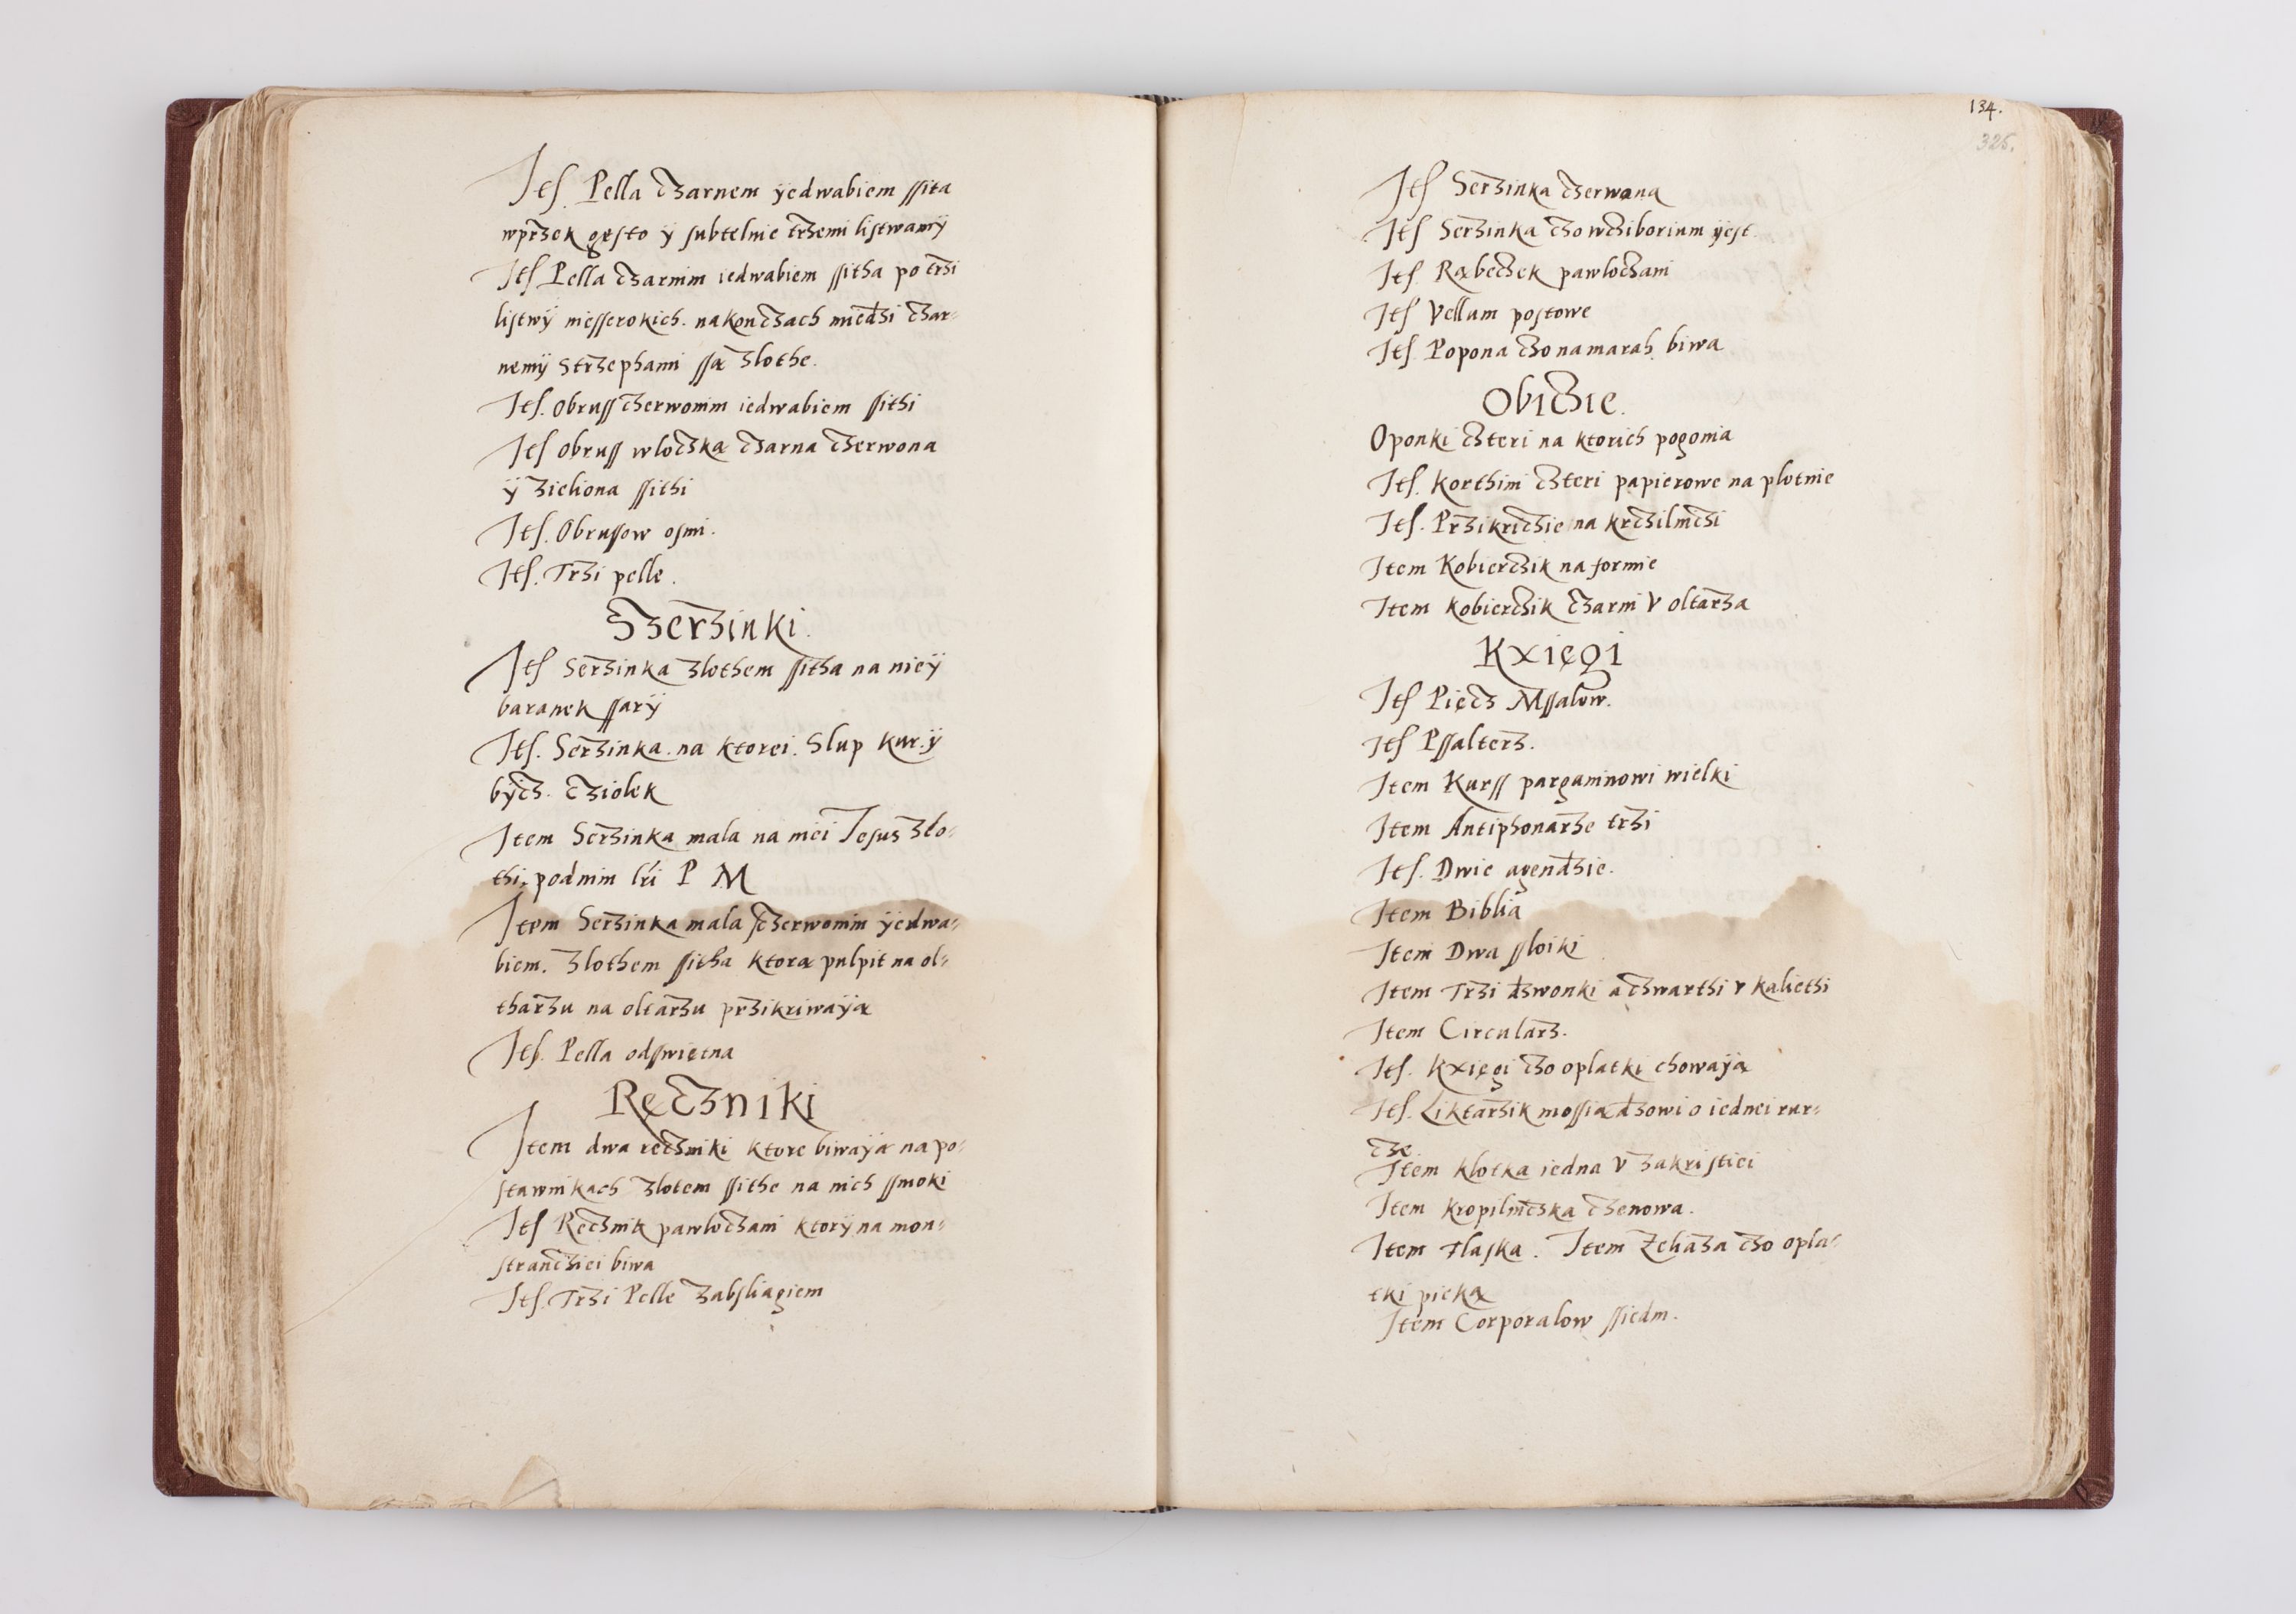 Itſ. Pella cżarnem ÿedwabiem ſſita
wprżek gęſto ÿ ſubtelnie trżemi liſtwamÿ
Itſ Pella cżarnim iedwabiem ſſitha po trżi
liſtwÿ nieſſerokich. nakoncżach miedżi cżar-
nemÿ Strzephami ſſą Złothe.
Itſ. Obruſſ cżerwonim iedwabiem ſſithi
Itſ obruſſ wlocżką cżarna cżerwona
ÿ Zieliona ſſithi
Itſ. Obruſſow oſmi.
Itſ. Trżi pelle.
Szerżinki.
Itſ Serżinka Złothem ſſitha na nieÿ
baranek ſſarÿ
Itſ. Serżinka. na ktorei. Slup Kur. ÿ
bÿcż. cżiolek
Item Serżinka mala na niei Jeſus Zło-
thi. podnim lr̃i P M
Item Serżinka mala cżerwonim ÿedwa-
biem. Zlothem ſſitha ktorą pulpit na ol-
tharżu na oltarżu prżikriwaÿą
Itſ. Pella odſwiętna
Ręcżniki
Item dwa ręcżniki ktore biwaÿą na po-
ſtawnikach Złotem ſſithe na nich ſſmoki
Itſ Ręcżnik pawlocżani ktorÿ na mon-
ſtrancżiei biwa
Itſ. Trżi Pelle Zabſliagiem
134.
325.
Itſ Serżinka cżerwona
Itſ Serżinka cżo wcżiborium ÿeſt.
Itſ. Rąbecżek pawlocżani
Itſ Vellum poſtowe
Itſ. Popona cżo namarah biwa
Obicżie.
Oponki cżteri na ktorich pogonia
Itſ. Korthini cżteri papierowe na plotnie
Itſ. Prżikricżie na krcżilnicżi
Item Kobiercżik na formie
Item kobiercżik cżarni V oltarża
Kxięgi
Itſ Pięcż Mſſalow.
Itſ Pſſalterż.
Item Kurſſ pargaminowi wielki
Item Antiphonarże trżi
Itſ. Dwie agendżie.
Item Biblia
Item Dwa ſſloiki
Item Trżi dżwonki a cżwarthi v kaliethi
Item Circularż.
Itſ. Kxięgi cżo oplatki chowaÿą
Itſ. Liktarżik moſſiądżowi o iednei rur-
cże
Item klotka iedna V Zakriſtiei
Item kropilnicżka cżenowa.
Item Flaſka. Item Zeliaża cżo opla-
tki pieką
Item Corporalow ſſiedm.